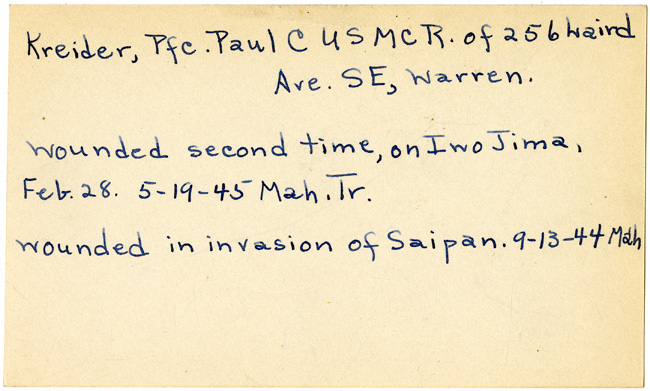 Kreider, Pfc. Paul C USMCR. of 256 Laird
Ave. SE, Warren.
wounded second time, on Iwo Jima,
Feb. 28. 5-19-45 Mah. Tr.
wounded in invasion of Saipan. 9-13-44 Mah